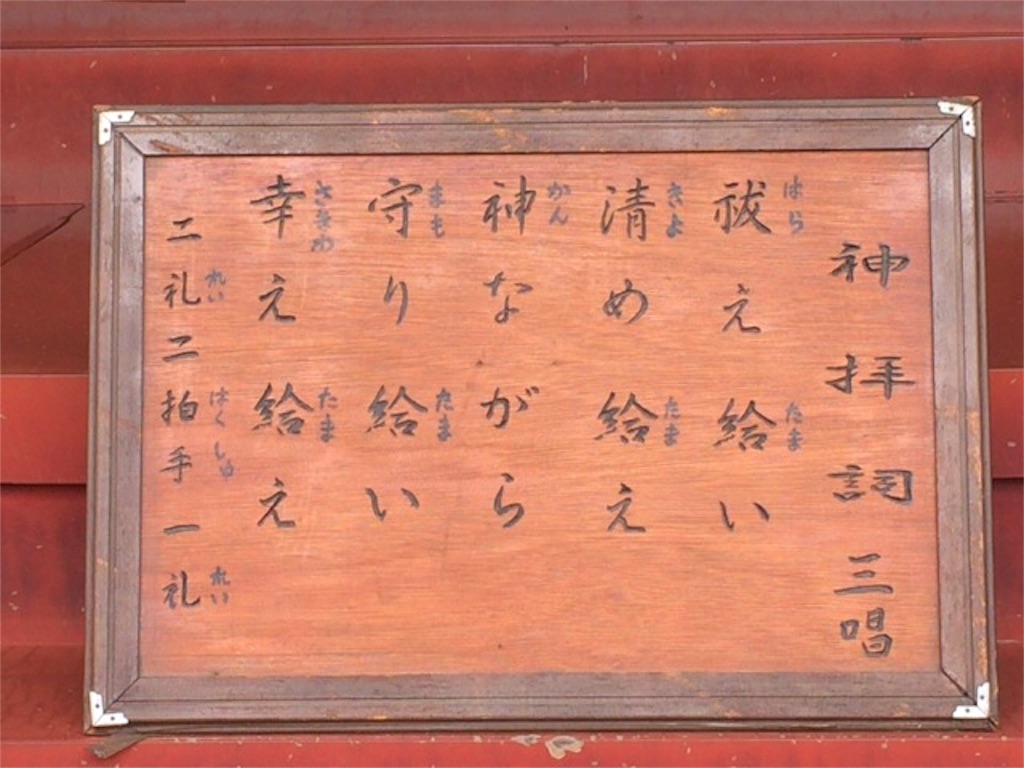 神拝詞三唱
祓え給い
清め給え
神ながら
守り給い
幸え給え
二礼二拍手一礼
はら
たま
きよ
たま
かん
まも
たま
さきわ
たま
れい
はくしゅ
れい